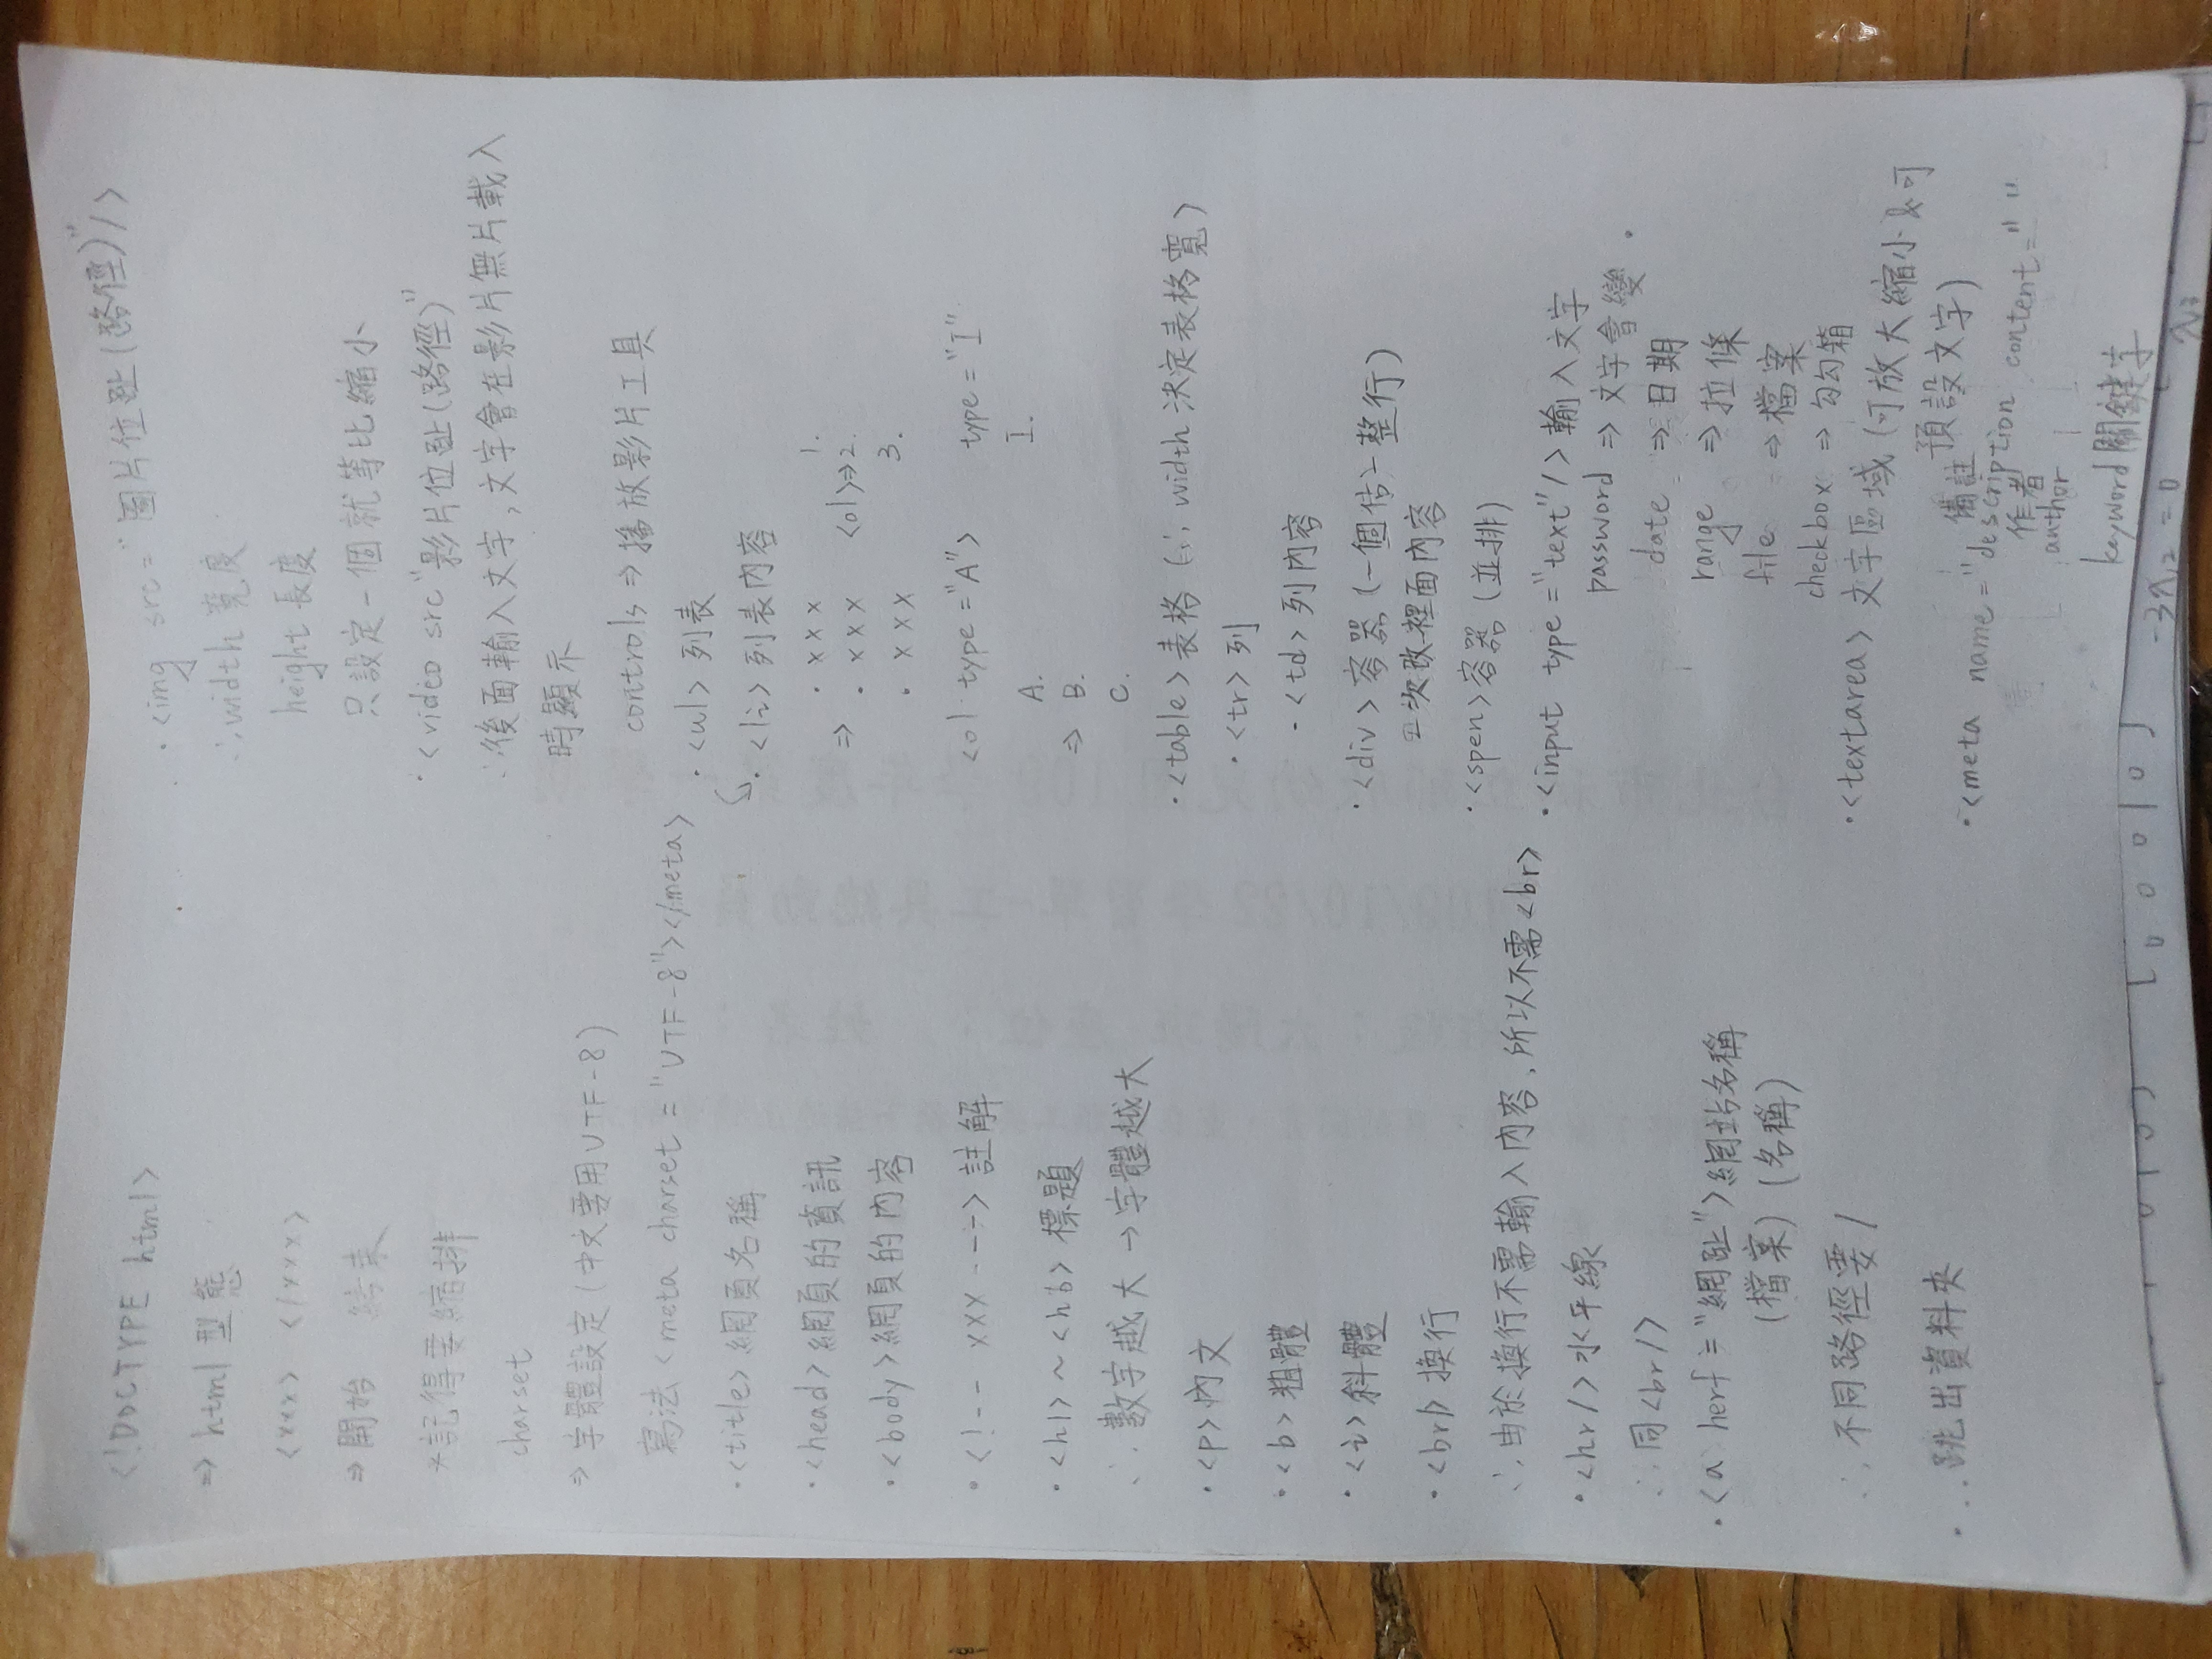 <!DOCTYPE html>
⇒ html 型態
<xxx> </xxx>
⇒ 開始 結束
*記得要縮排
charset
⇒ 字體設定(中文要用UTF-8)
寫法<meta charset = "UTF-8"></meta>
·<title>網頁名稱
·<head>網頁的資訊
·<body>網頁的內容
·<!-- xxx --->註解
·<h1>~<h6>標題
∴數字越大→字體越大
·<p>內文
·<b>粗體
·<i>斜體
·<br/>換行
∴由於換行不需輸入內容,所以不需<br>
·<hr/>水平線
∴同<br/>
·<a herf="網址">網站名稱
(檔案) (名稱)
∴不同路徑要/
· ..跳出資料夾
·<img src="圖片位址(路徑)"/>
∴width寬度
height長度
只設定一個就等比縮小
·<video src"影片位址(路徑)"
∴後面輸入文字,文字會在影片無片載入
時顯示
controls⇒播放影片工具
·<ul>列表
·<li>列表內容
· xxx 1.
⇒ · xxx <ol>⇒2.
· xxx 3.
<ol type="A"> type="I"
A. I.
⇒ B.
C.
·<table>表格(∴width決定表格寬)
·<tr>列
-<td>列內容
·<div>容器(一個佔一整行)
次改裡面內容
·<spen>容器(並排)
·<input type="text"/>輸入文字
password ⇒ 文字會變 .
date ⇒ 日期
range ⇒ 拉條
file ⇒ 檔案
checkbox ⇒ 勾勾箱
·<textarea>文字區域(可放大縮小&可
預設文字)
備註
·<meta name="description content=" "
作者
author
keyword關鍵字
-3x₁₂=0